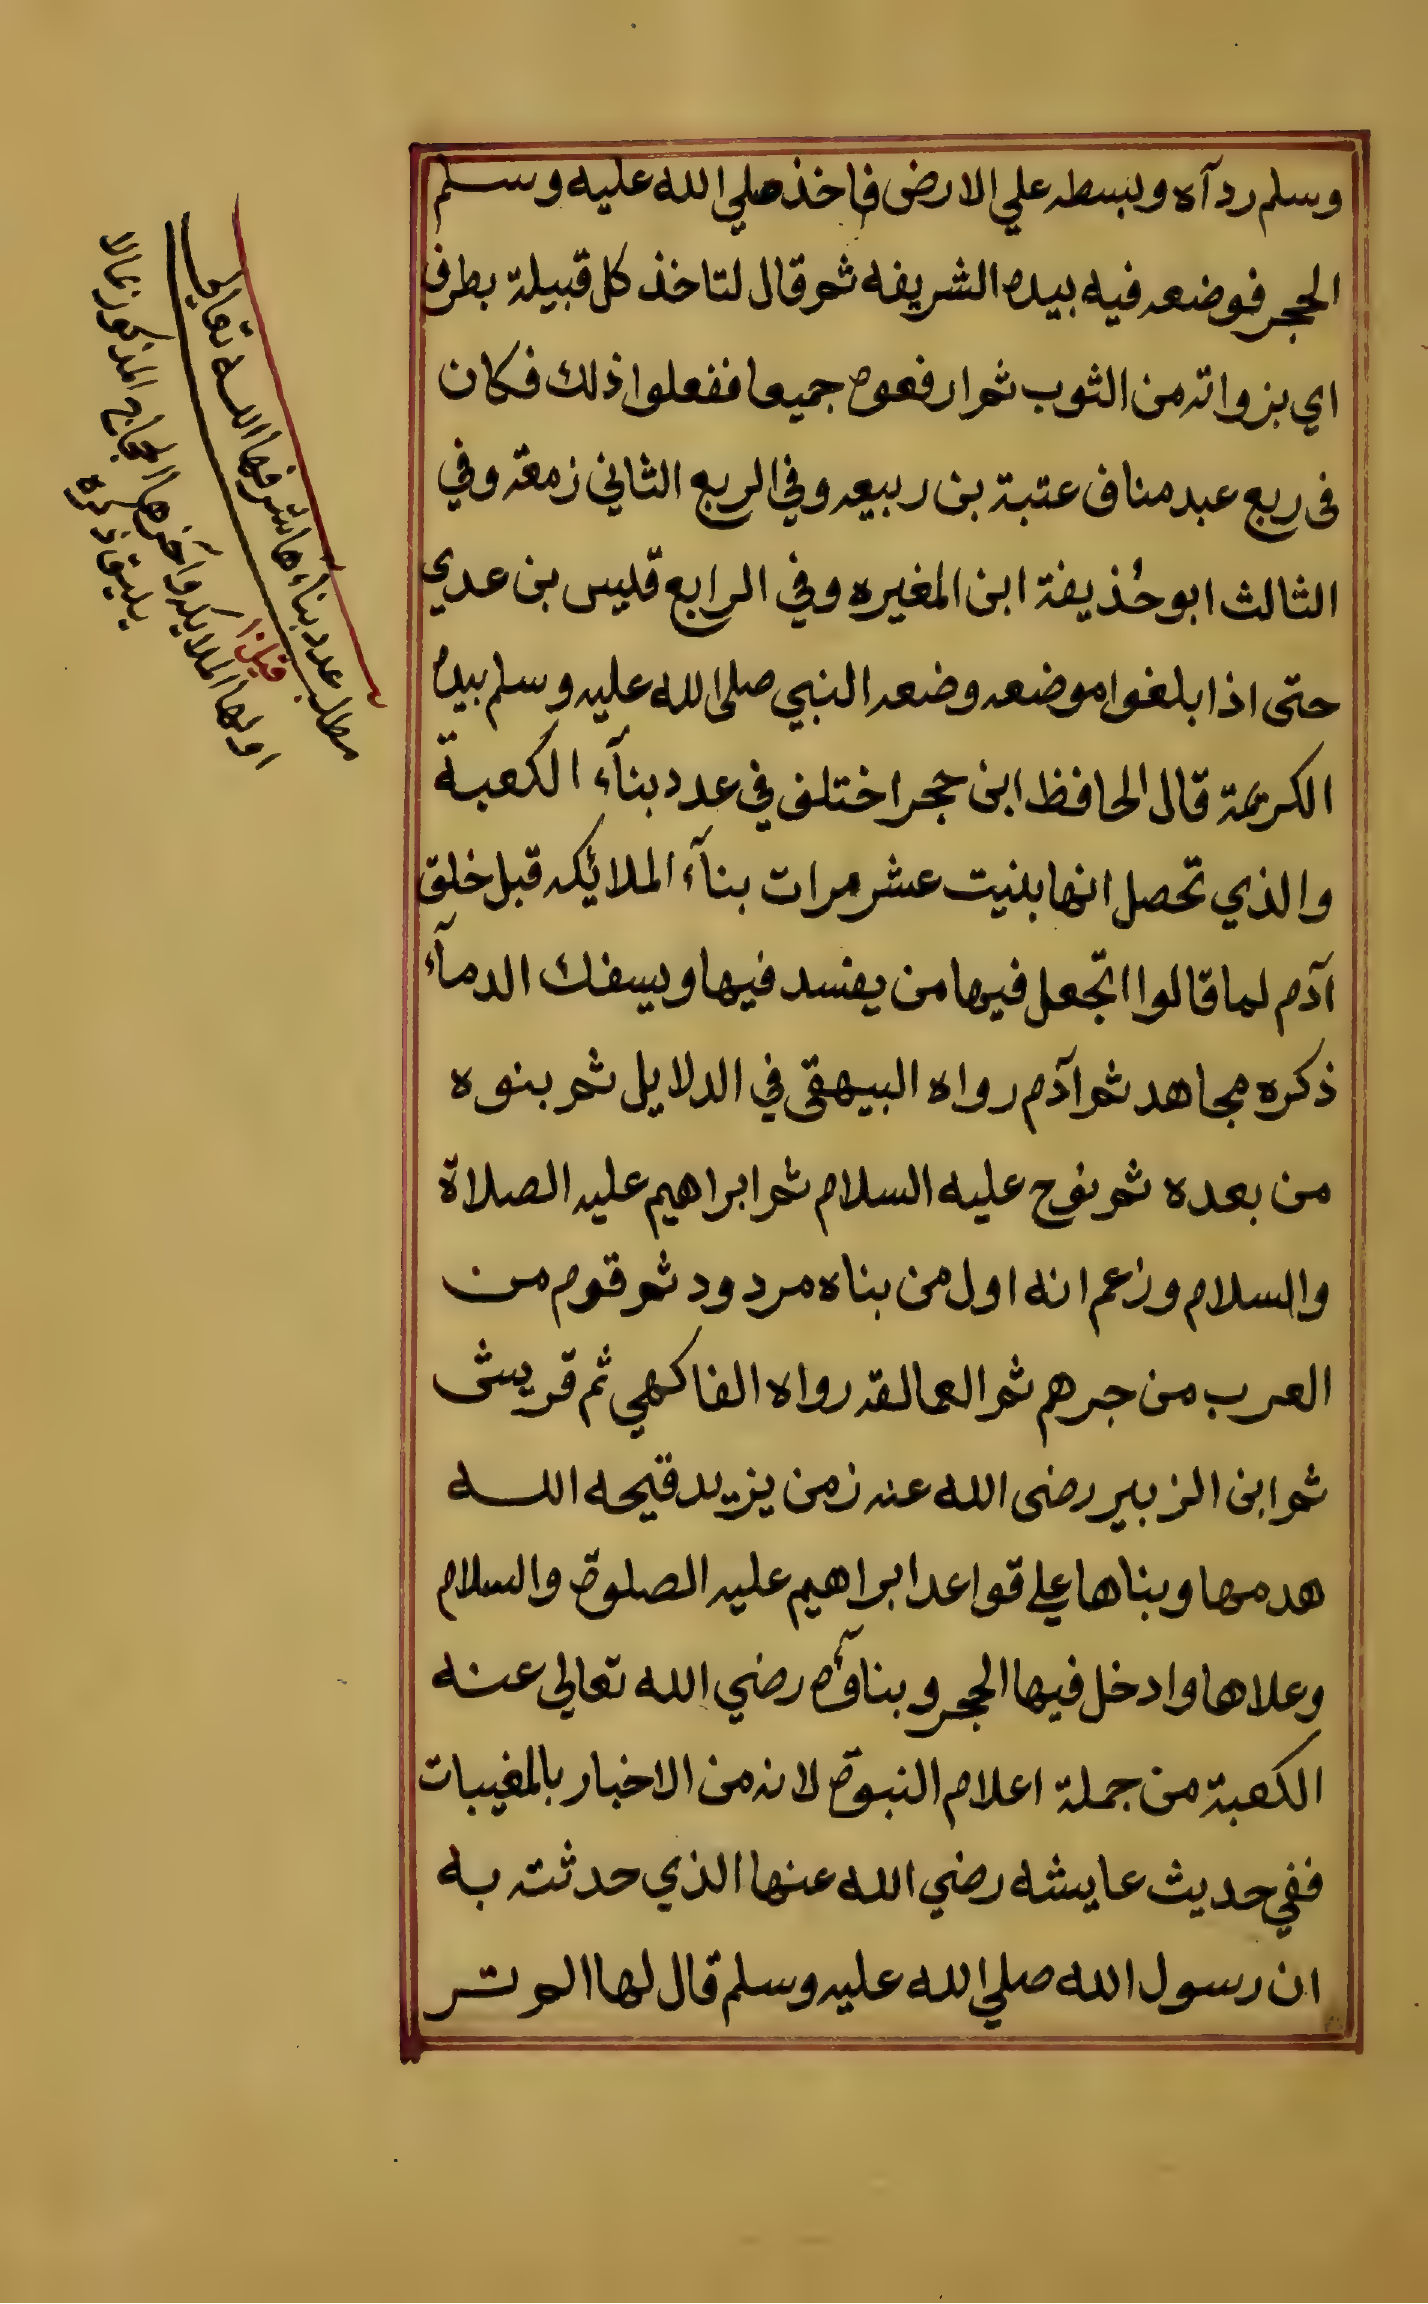 وسلم ردآه وبسطه علي الارض فاخذ صلي الله عليه وسلم
الحجر فوضعه فيه بيده الشريفه ثم قال لتاخذ كل قبيلة بطرف
اي بزواته من الثوب ثم ارفعوه جميعا ففعلوا ذلك فكان
في ربع عبد مناف عتبة بن ربيعه وفي الربع الثاني زمعة وفي
الثالث ابو حُذيفة ابن المغيره وفي الرابع قليس بن عدي
حتى اذا بلغوا موضعه وضعه النبي صلى الله عليه وسلم بيده
الكريمة قال الحافظ ابن حجر اختلف في عدد بنآء الكعبة
والذي تحصل انها بنيت عشر مرات بنآء الملائكه قبل خلق
آدم لما قالوا اتجعل فيها من يفسد فيها ويسفك الدمآء
ذكره مجاهد ثم آدم رواه البيهقي في الدلايل ثم بنوه
من بعده ثم نوح عليه السلام ثم ابراهيم عليه الصلاة
والسلام وزعم انه اول من بناه مردود ثم قوم من
العرب من جرهم ثم العمالقه رواه الفاكهي ثم قريش
ثم ابن الزبير رضى الله عنه زمن يزيد قبحه الله
هدمها وبناها علي قواعد ابراهيم عليه الصلوة والسلام
وعلاها وادخل فيها الحجر وبناؤه رضي الله تعالى عنه
الكعبة من جملة اعلام النبوة لانه من الاخبار بالمغيبات
ففي حديث عايشه رضي الله عنها الذي حدثته به
ان رسول الله صلي الله عليه وسلم قال لها الم تر
مطلب عدد بناءها شرفها الله تعالى
اولها الملايكه وآخرها الحجاج المذكور بمالا
يليق ذكره